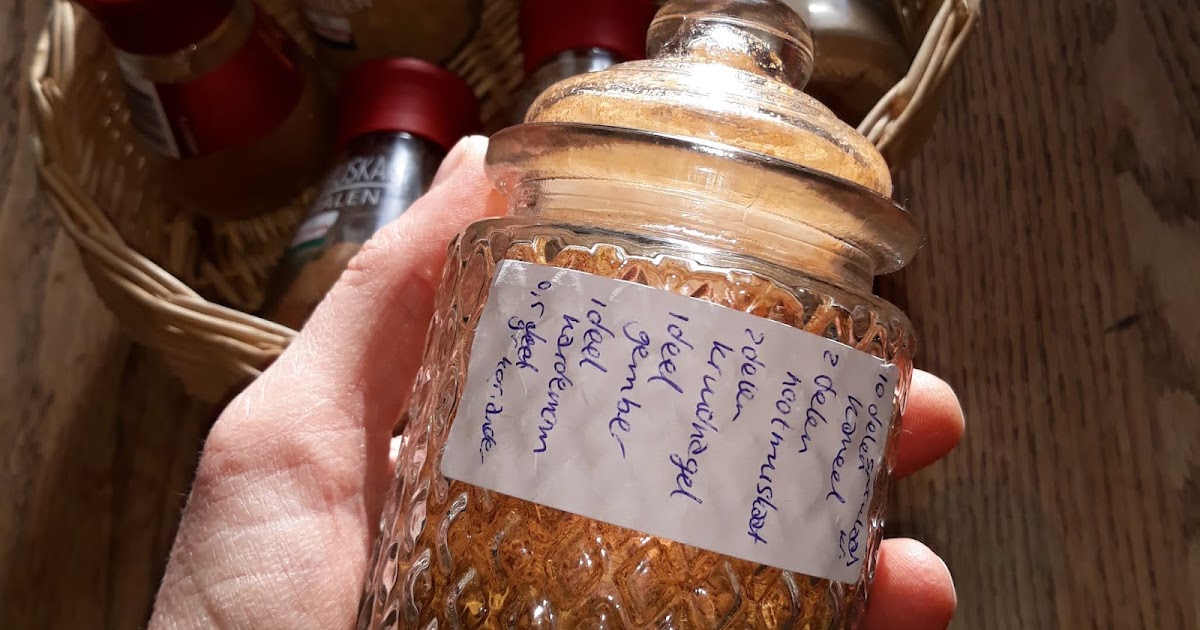 10 delen Speculaas
kaneel kr.
2 delen
nootmuskaat
2 delen
kruidnagel
1 deel
gember
1 deel
kardemom
0,5 deel
koriander
USKA
ALEN